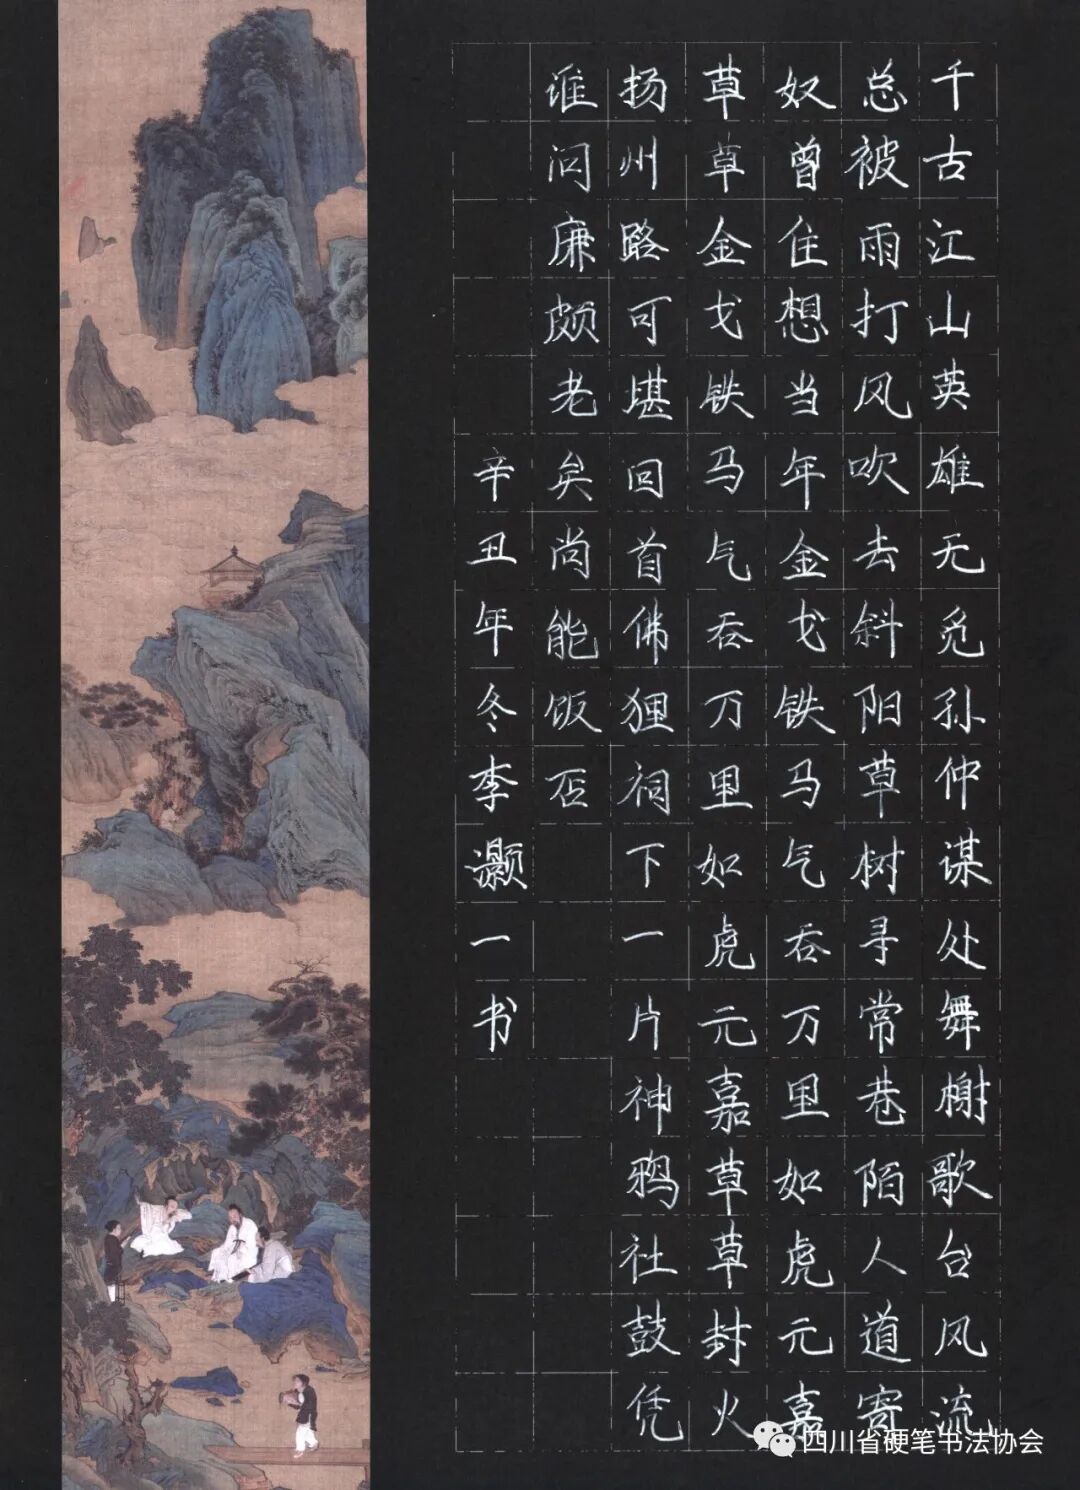 千古江山英雄无觅孙仲谋处舞榭歌台风流
总被雨打风吹去斜阳草树寻常巷陌人道寄
奴曾住想当年金戈铁马气吞万里如虎元嘉
草草金戈铁马气吞万里如虎元嘉草草封火
扬州路可堪回首佛狸祠下一片神鸦社鼓凭
谁问廉颇老矣尚能饭否
辛丑年冬李灏一书
四川省硬笔书法协会